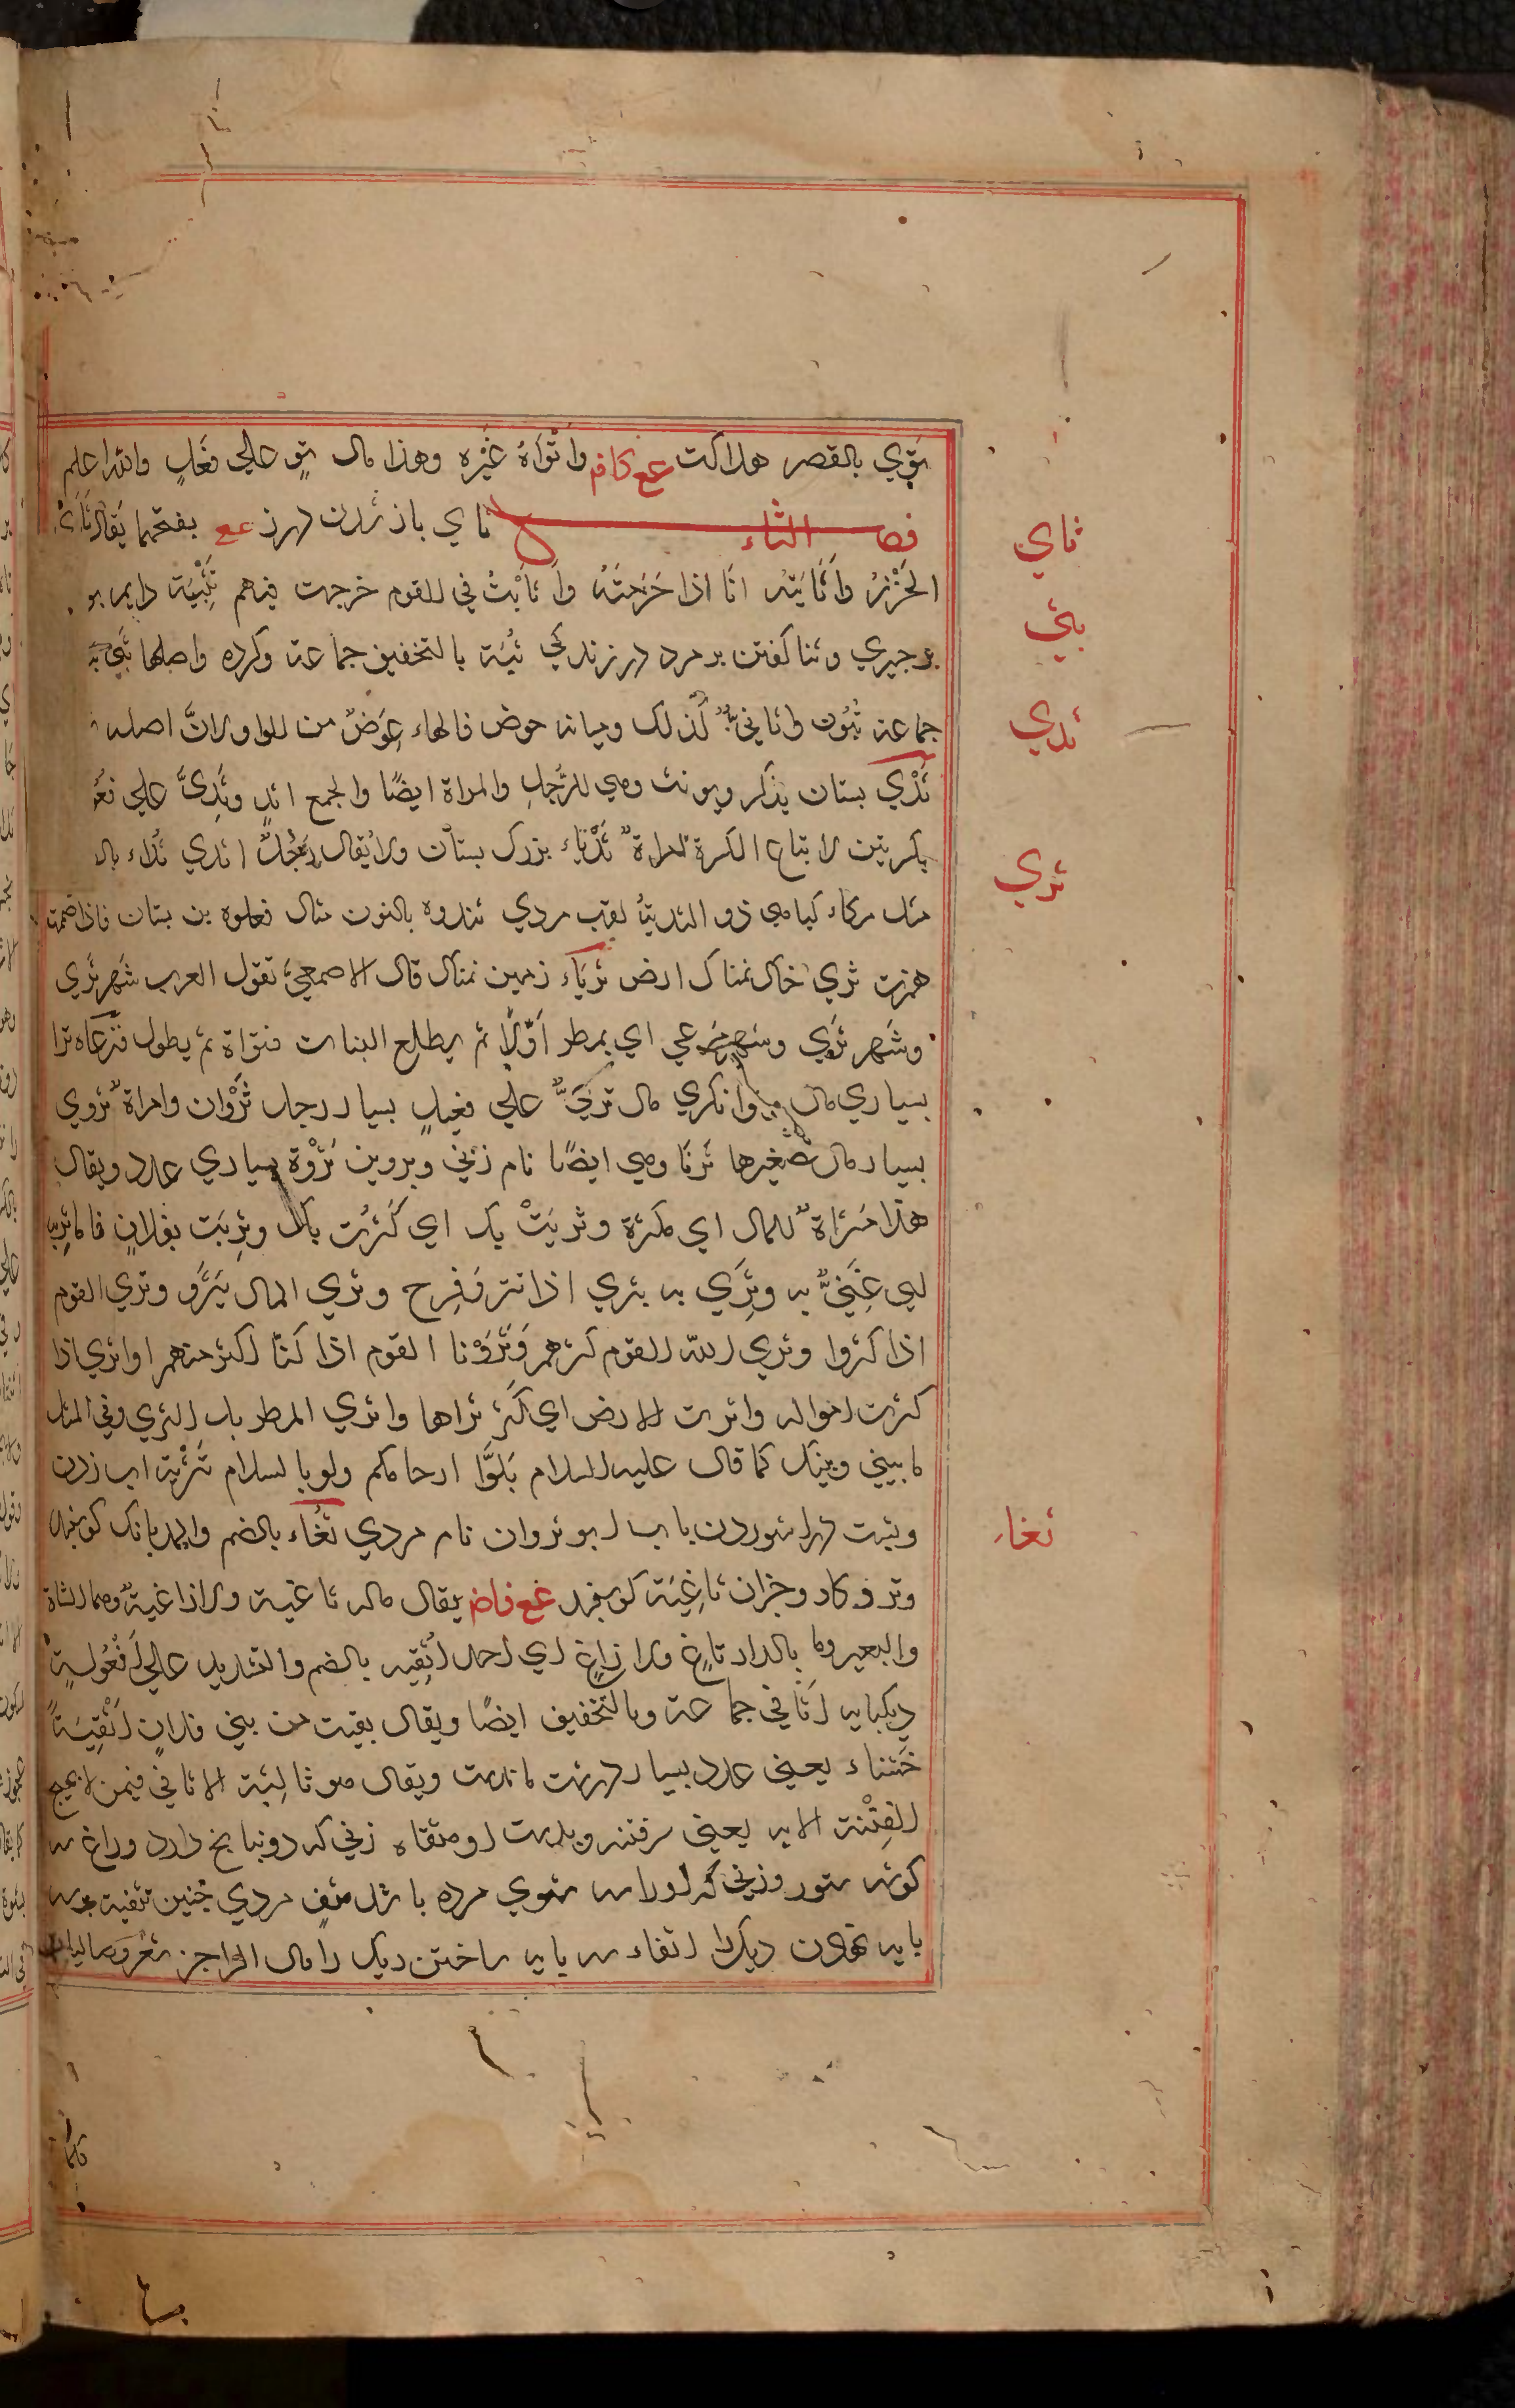 توي بالقصر هلاكت عع كافم واتواه غيره وهذا مال تو علي فعل والله اعلم
فصل الثاء ثاي باز شدن درز عع بفتحهما يقال ثاي
الخرز واثايته انا اذا خرمته واثايت في القوم خرجت فيهم تثبية دايم بر
برجيزي وثنا گفتن بر مرد در زندگي ثبة بالتخفيف جماعة وكرده واصلها ثبي
جماعة ثبون واثابي كذلك وميانه حوض فالهاء عوض من الواو لان اصله
ثدي بستان يذكر ويونث وهي للرجل والمراة ايضا والجمع اثد وثدي علي فعول
بكسرتين لاتباع الكسرة امراة ثدياء بزرك بستان ولا يقال رجل اثدي ثداء بال
مثل مكاء گياهي ذو الثدية لقب مردي ثندوه بالنون مثال فعلوه بن بستان فاذا ضممت
همزت ثري خاك نمناك ارض ثرياء زمين نمناك قال الاصمعي تقول العرب شهر ثري
وشهر تري وشهر مرعي اي يمطر اولا ثم يطلع النبات فتراه ثم يطول فترعاه ثرا
بسياري مال وتوانكري مال ثري علي فعيل بسيار رجل ثروان وامراة ثروي
بسيار مال تصغيرها ثريا وهي ايضا نام زني وپروين ثروة بسياري عدد ويقال
هذا مثراة للمال اي مكثرة وثريت بك اي كثرت بك وثريت بفلان فانا ثري به
اي غني به وثري به يثري اذا سر وفرح وثري المال يثرو وثري القوم
اذا كثروا وثري الله القوم كثرهم وثرونا القوم اذا كنا اكثر منهم واثري اذا
كثرت امواله واثرت الارض اي كثر ثراها واثري المطر بل الثري وفي المثل
ما بيني وبينك كما قال عليه السلام بلوا ارحامكم ولو بالسلام تثرية اب زدن
وتر شوردن باب ابو ثروان نام مردي ثغاء بالضم والمد بانك گوسفند
وبز وگاو وجزان ثاغية گوسفند عع فاض يقال ماله ثاغية ولا راغية وهما الشاة
والبعير وما بالدار ثاغ ولا راغ اي احد اثفية بالضم والتشديد علي افعولة
ديگپايه اثافي جماعة وبالتخفيف ايضا ويقال بقيت من بني فلان اثفية
خشناء يعني عدد بسيار درشت ماندست ويقال هو ثالثة الاثافي فيمن لا يهيج
الفتنة الا به يعني سر فتنه وبلاست او مثفاه زني كه دونباغ دارد وداغ سه
گوشه ستور وزني كه اورا سه شوي مرده باشد مثف مردي چنين تثفية بر سه
پايه نهادن ديك را اثفاء سه پايه ساختن ديك را قال الراجز
ثاي
ثبي
ثدي
ثري
ثغاء